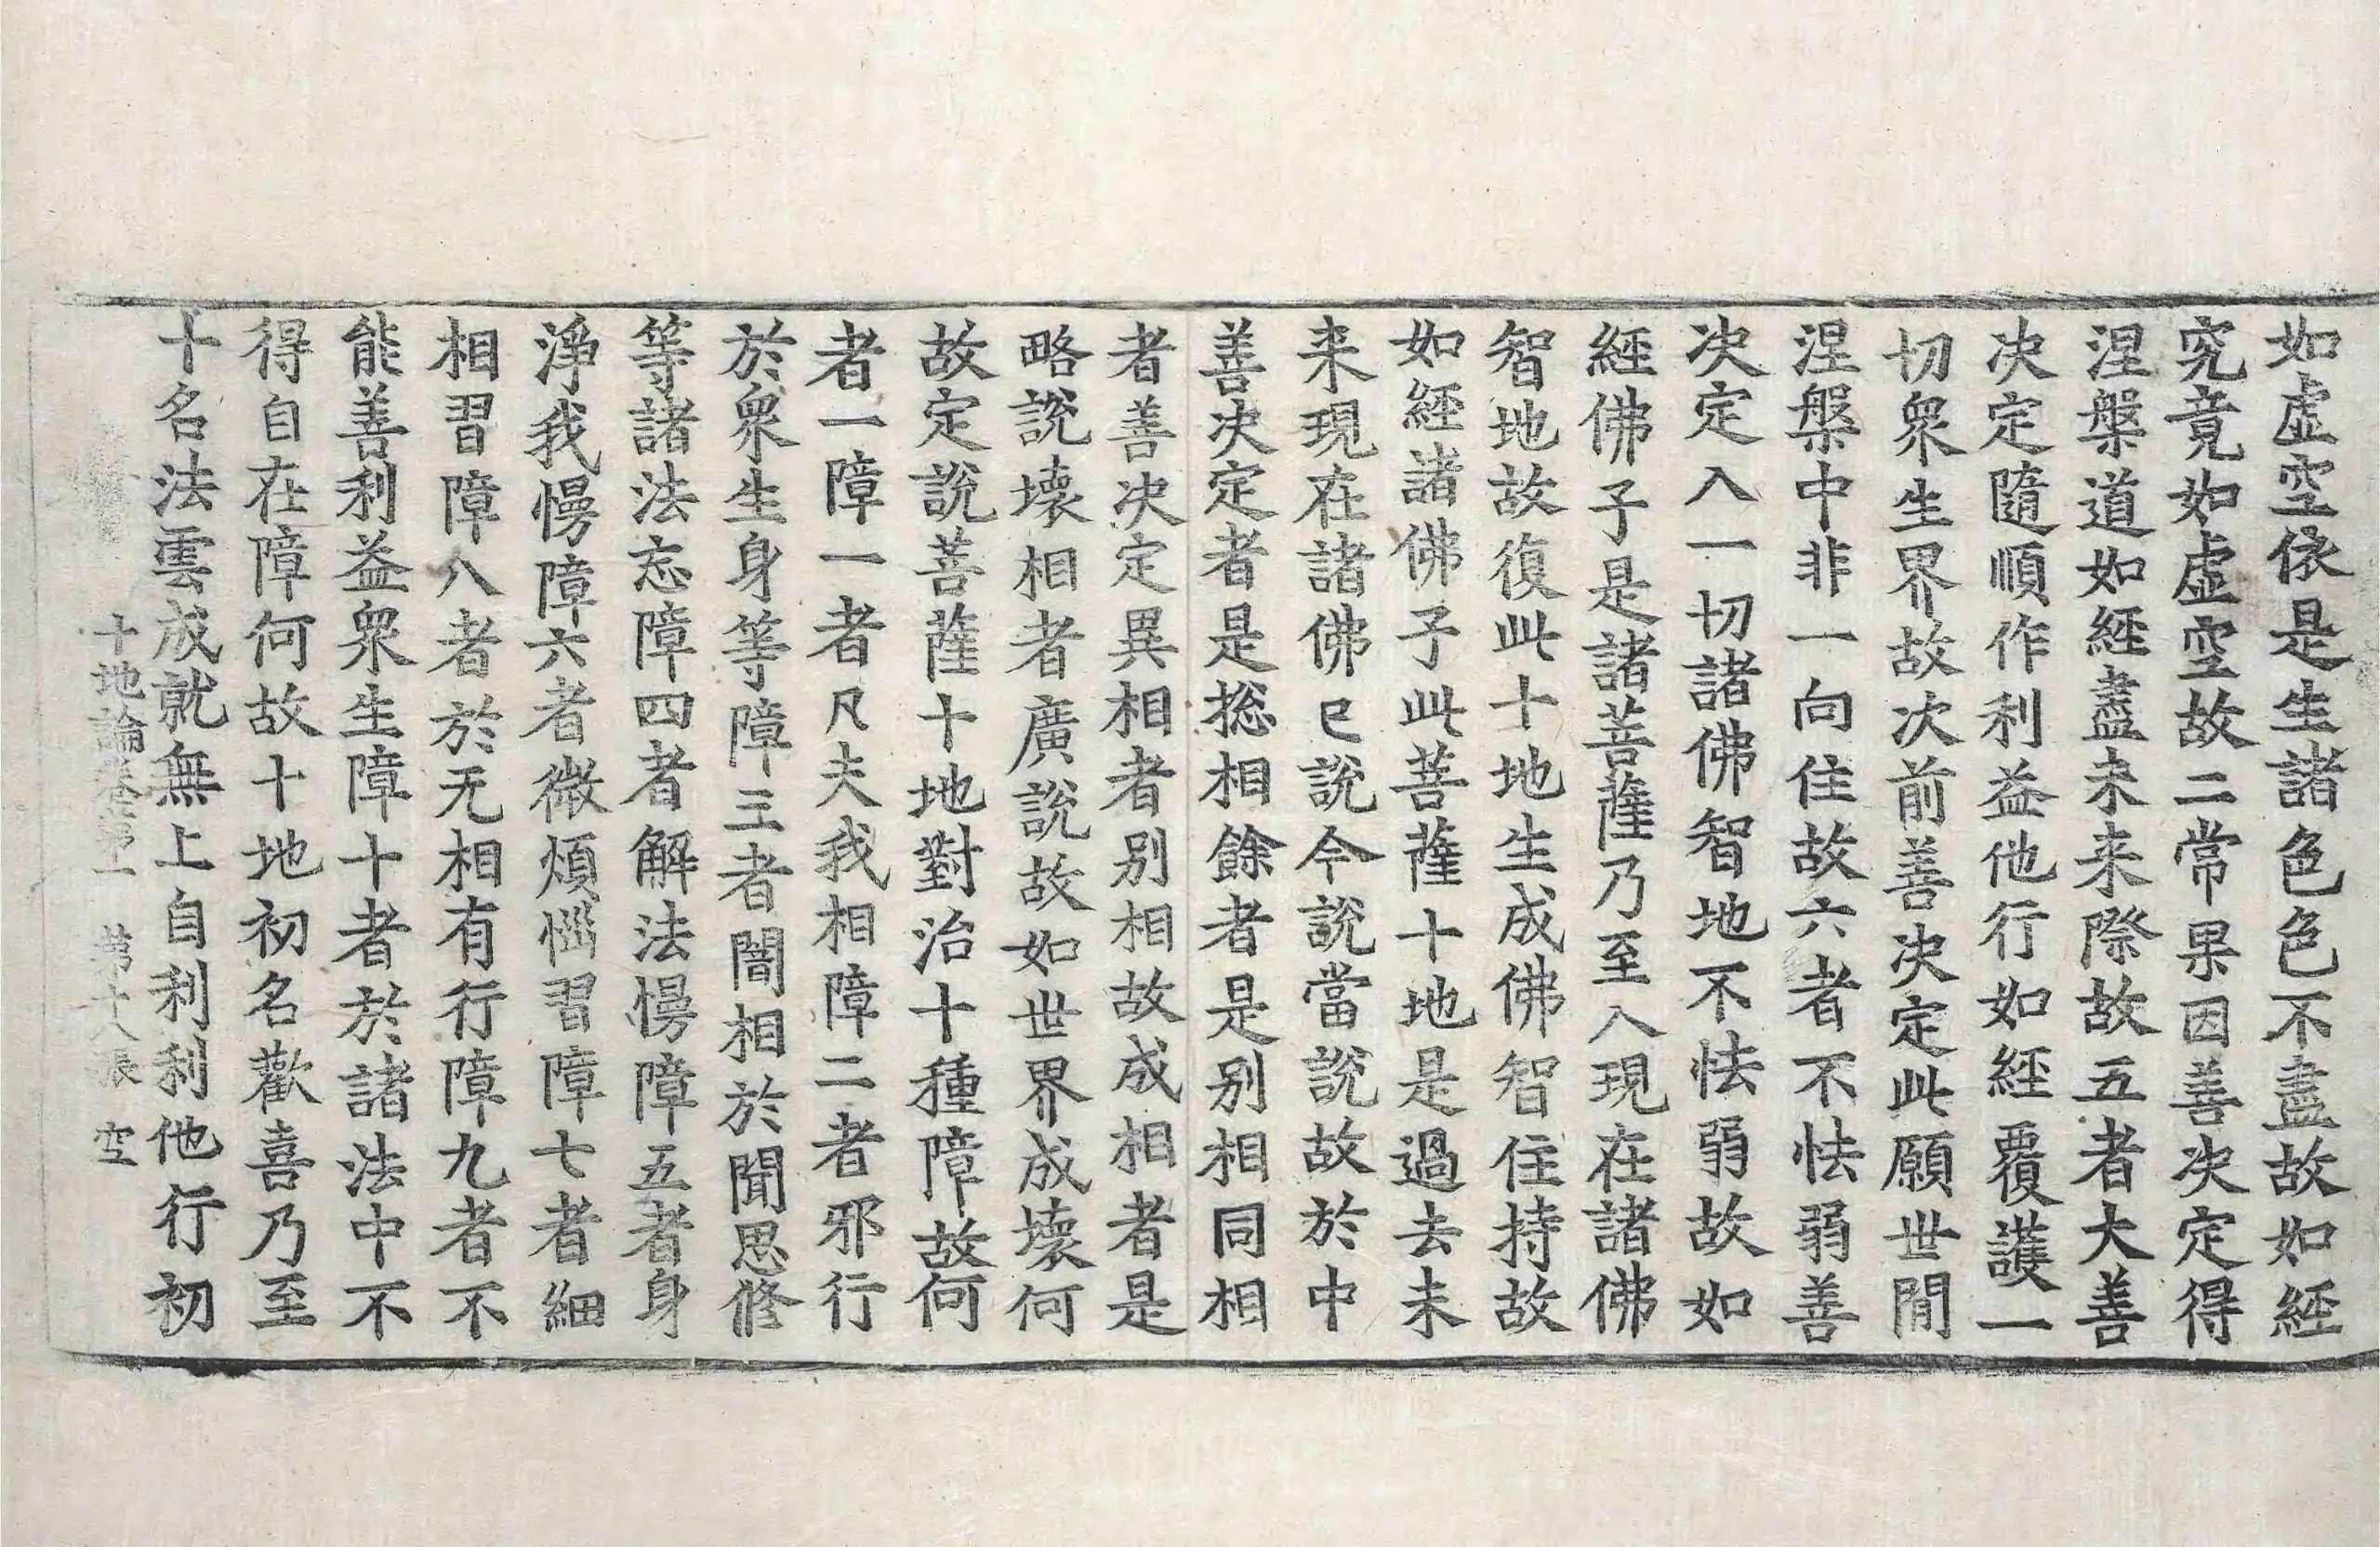 如虛空依是生諸色色不盡故如經
究竟如虛空故二常果因善决定得
涅槃道如經盡未来際故五者大善
决定隨順作利益他行如經覆護一
切衆生界故次前善决定此願世閒
涅槃中非一向住故六者不怯弱善
决定入一切諸佛智地不怯弱故如
經佛子是諸菩薩乃至入現在諸佛
智地故復此十地生成佛智住持故
如經諸佛子此菩薩十地是過去未
来現在諸佛已說今說當說故於中
善决定者是揔相餘者是别相同相
者善决定異相者别相故成相者是
略說壞相者廣說故如世界成壞何
故定說菩薩十地對治十種障故何
者一障一者凡夫我相障二者邪行
於衆生身等障三者闇相於聞思修
等諸法忘障四者解法慢障五者身
淨我慢障六者微煩惱習障七者細
相習障八者於无相有行障九者不
能善利益衆生障十者於諸法中不
得自在障何故十地初名歡喜乃至
十名法雲成就無上自利利他行初
十地論卷第一 第十八張 空